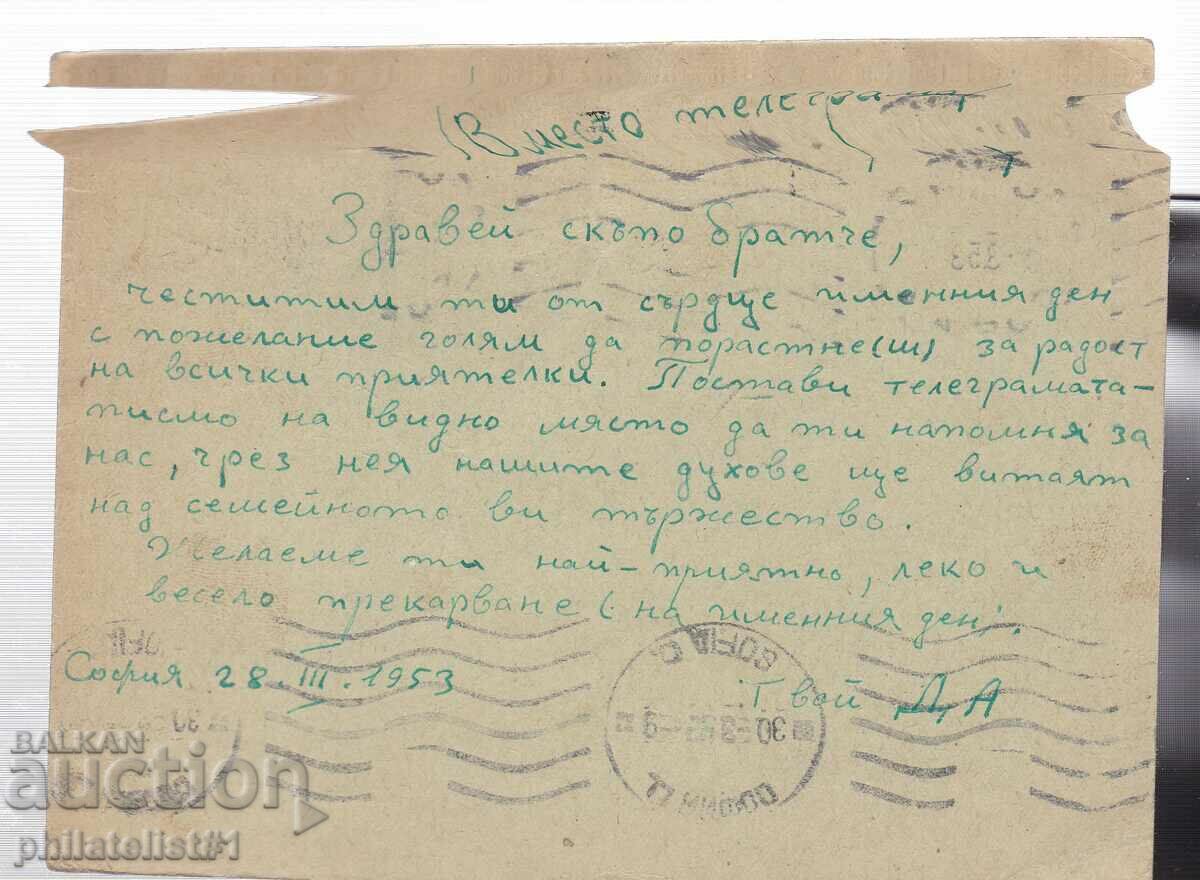 (Вместо телеграма)
Здравей скъпо братче,
честитим ти от сърдце именния ден
с пожелание голям да порастне(ш) за радост
на всички приятелки. Постави телеграмата-
писмо на видно място да ти напомня за
нас, чрез нея нашите духове ще витаят
над семейното ви тържество.
Желаеме ти най-приятно, леко и
весело прекарване (на именния ден).
София 28.III.1953
Твой Д, А
SOFIA
30
СОФИЯ
BALKAN
auction
philatelist#1